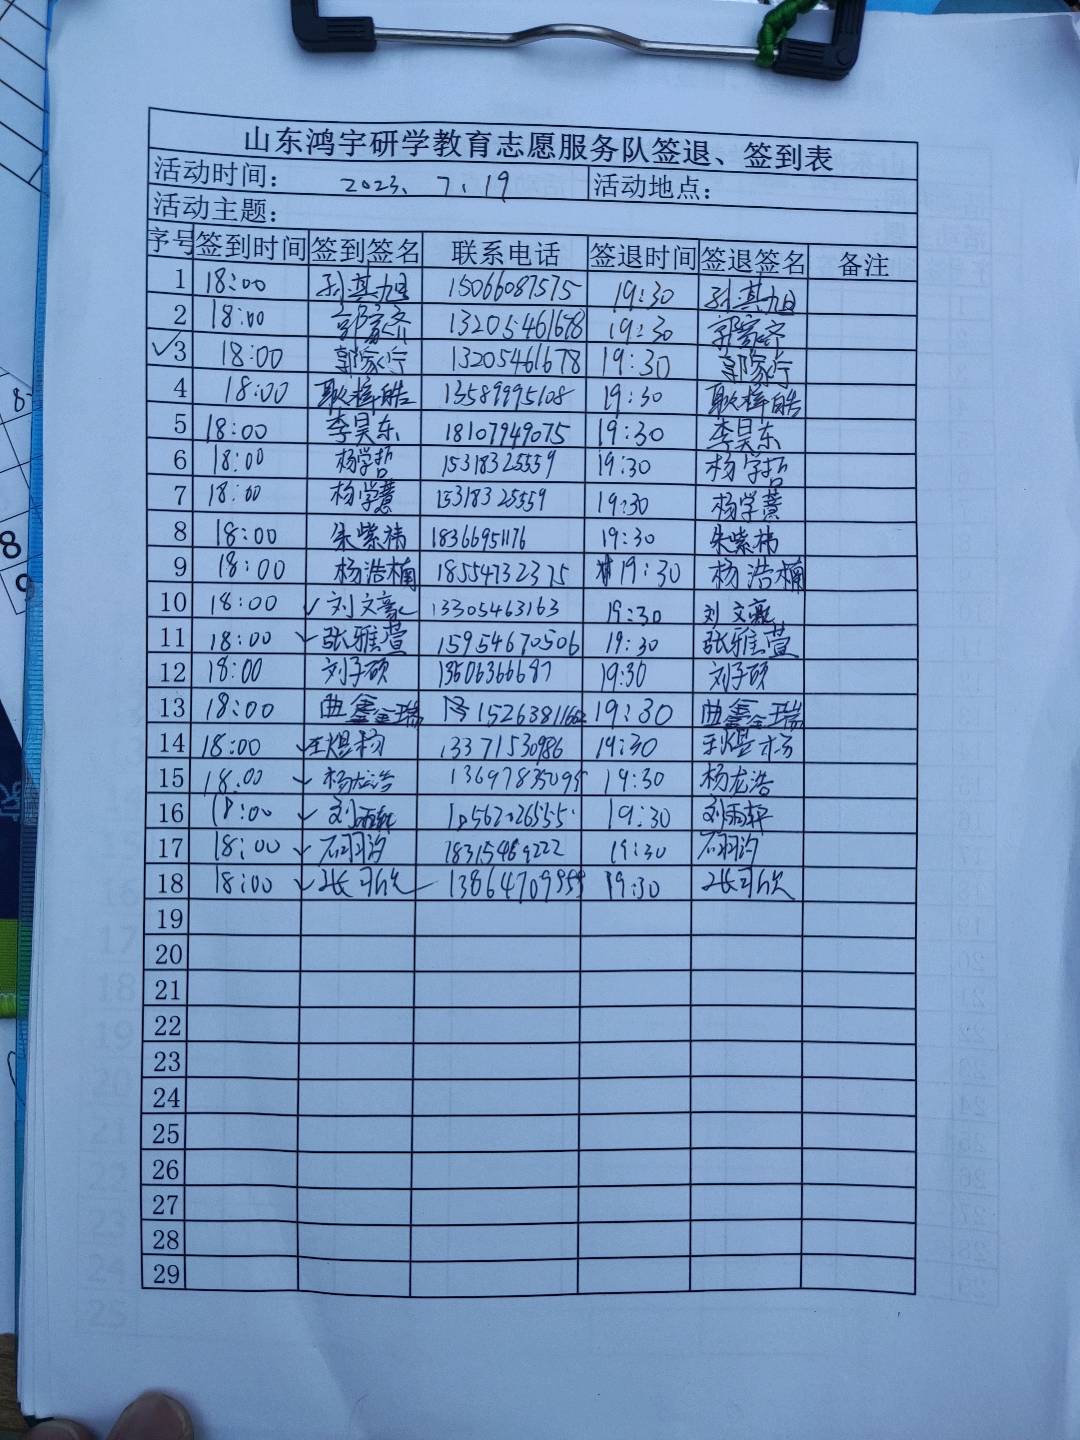 山东鸿宇研学教育志愿服务队签退、签到表
活动时间: 2023、7、19 活动地点:
活动主题:
序号 签到时间 签到签名 联系电话 签退时间 签退签名 备注
1 18:00 孙淇旭 15066087575 19:30 孙淇旭
2 18:00 郭家齐 13205461678 19:30 郭家齐
3 18:00 郭家宁 13205461678 19:30 郭家宁
4 18:00 耿梓皓 13589995108 19:30 耿梓皓
5 18:00 李昊东 18107949075 19:30 李昊东
6 18:00 杨学哲 15318325559 19:30 杨学哲
7 18:00 杨学慧 15318325559 19:30 杨学慧
8 18:00 朱紫祎 18366951176 19:30 朱紫祎
9 18:00 杨浩楠 18554732375 19:30 杨浩楠
10 18:00 刘文豪 13305463163 19:30 刘文豪
11 18:00 张雅萱 15954670506 19:30 张雅萱
12 18:00 刘子硕 13506366687 19:30 刘子硕
13 18:00 曲鑫瑞 19:30 曲鑫瑞
14 18:00 王煜杨 13371530986 19:30 王煜杨
15 18:00 杨龙浩 13697835095 19:30 杨龙浩
16 18:00 刘雨轩 19:30 刘雨轩
17 18:00 石羽汐 18315469222 19:30 石羽汐
18 18:00 张可欣 13864709959 19:30 张可欣
19
20
21
22
23
24
25
26
27
28
29